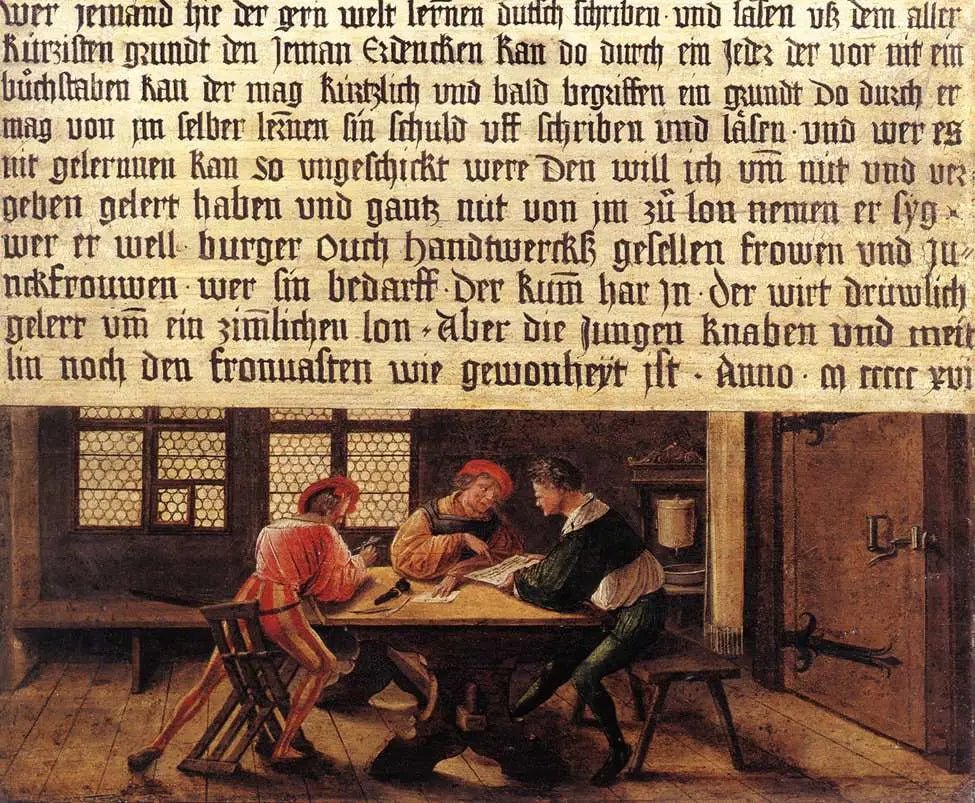 wer jemand hie der gern welt lernen dutsch schriben und läsen uß dem aller
kürzisten grundt den jeman Erdencken kan do durch ein jeder der vor nit ein
bůchstaben kan der mag kürtzlich und bald begriffen ein grundt do durch er
mag von jm selber lernen sin schuld uff schriben und läsen · und wer es
nit gelernnen kan so ungeschickt were Den will ich um̄ nüt und ver-
geben gelert haben und gantz nüt von jm zů lon nemen er syg ×
wer er well · burger ouch handtwerckß gesellen frowen und ju-
nckfrouwen · wer sin bedarff · Der kum̄ har jn · der wirt drüwlich
gelert um̄ ein zim̄lichen lon · Aber die jungen knaben und meit
lin noch den fronuasten wie gewonheyt ist · Anno · m ccccc xvi